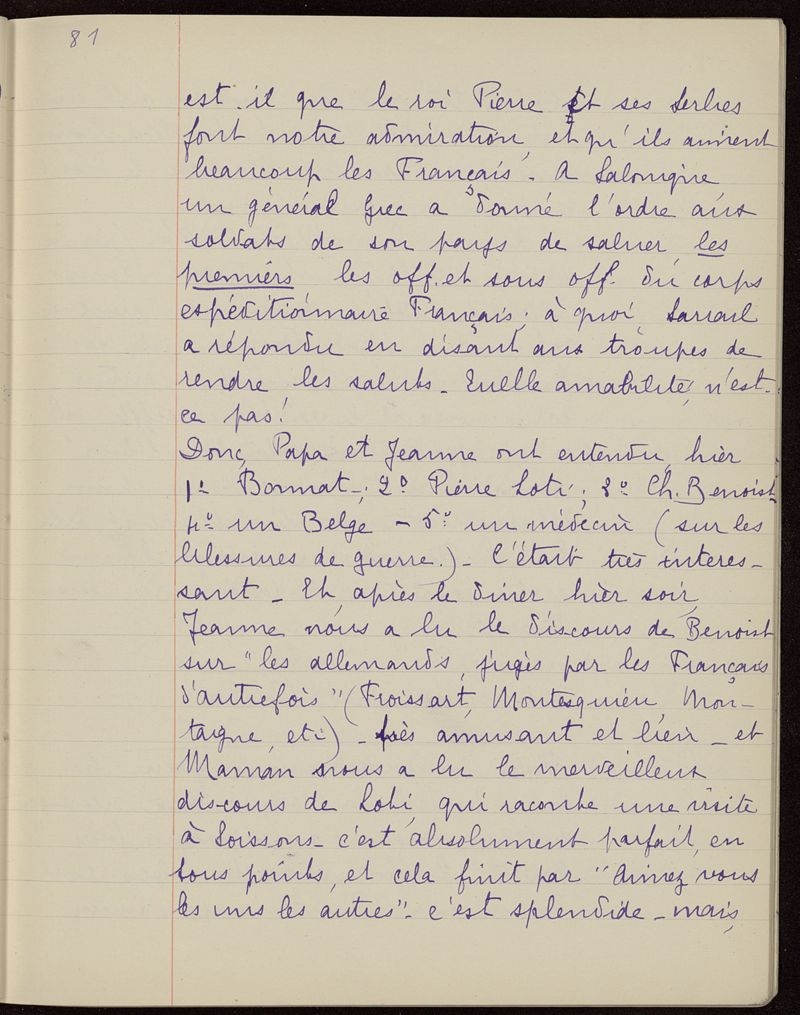 81
est-il que le roi Pierre et ses Serbes
font notre admiration, et qu'ils aiment
beaucoup les Français. A Salonique,
un général Grec a donné l'ordre aux
soldats de son pays de saluer les
premiers les off. et sous off. du corps
expéditionnaire Français; à quoi Sarrail
a répondu en disant aux troupes de
rendre les saluts. Quelle amabilité, n'est-
ce pas!
Donc, Papa et Jeanne ont entendu, hier
1º Bonnat; 2º Pierre Loti; 3º Ch. Benoist
4º un Belge - 5º un médecin (sur les
blessures de guerre.) - C'était très interes-
sant - Et, après le diner hier soir,
Jeanne nous a lu le discours de Benoist
sur "les allemands, jugés par les Français
d'autrefois" (Froissart, Montesquieu, Mon-
taigne, etc) - très amusant et bien - et
Maman nous a lu le merveilleux
discours de Loti, qui raconte une visite
à Soissons - c'est absolument parfait, en
tous points, et cela finit par "Aimez vous
les uns les autres" - c'est splendide - mais,